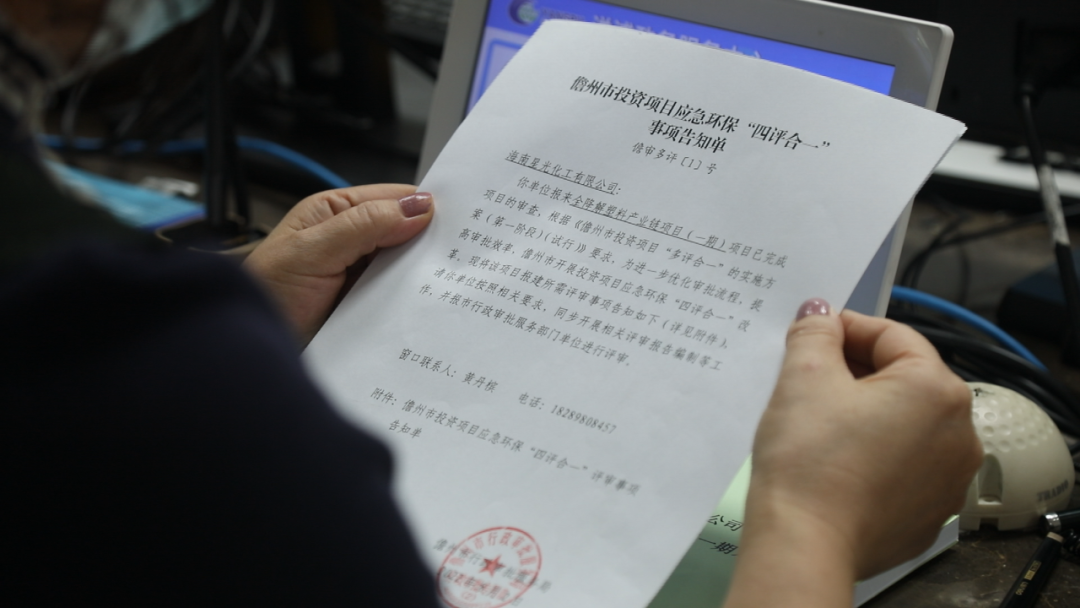 儋州市投资项目应急环保“四评合一”
事项告知单
儋审多评〔1〕号
海南星光化工有限公司:
你单位报来全降解塑料产业链项目(一期)项目已完成
项目的审查。根据《儋州市投资项目“多评合一”的实施方
案(第一阶段)(试行)》要求,为进一步优化审批流程,提
高审批效率,儋州市开展投资项目应急环保“四评合一”改
革。现将该项目报建所需评审事项告知如下(详见附件),
请你单位按照相关要求,同步开展相关评审报告编制等工
作,并报市行政审批服务部门单位进行评审。
窗口联系人:黄丹槟 电话:18289808457
附件:儋州市投资项目应急环保“四评合一”评审事项
告知单
公司
一期